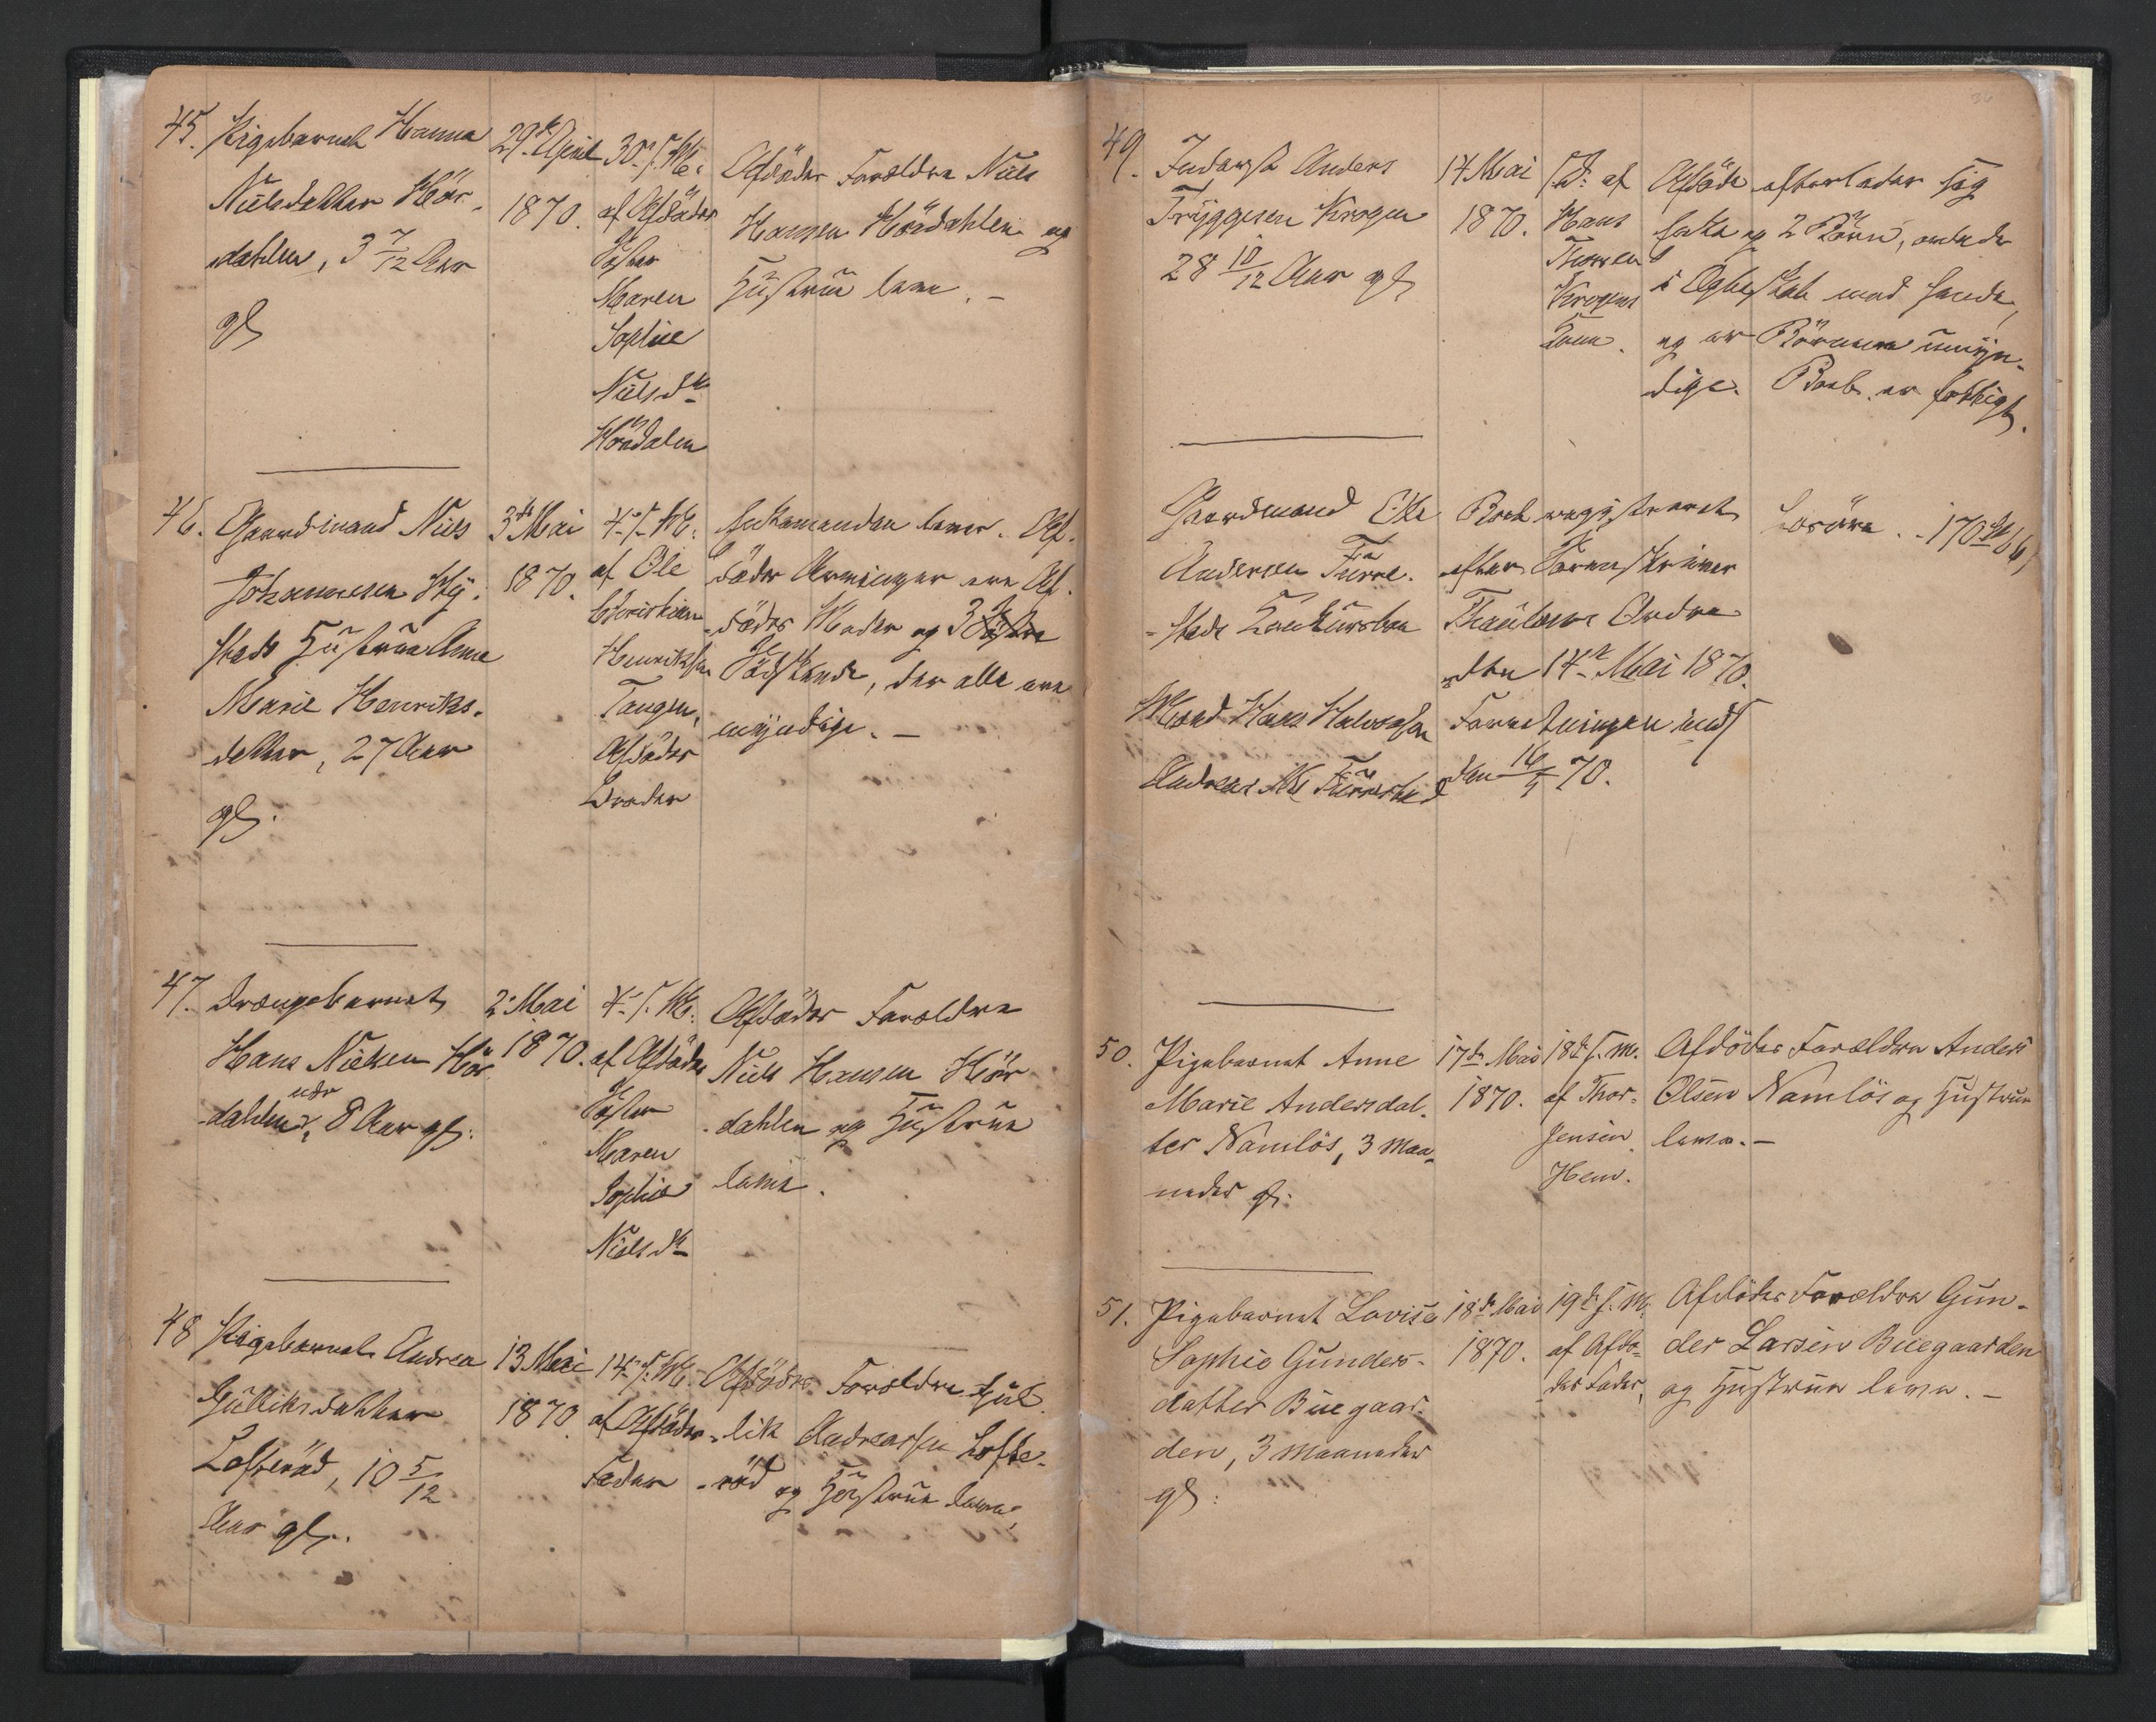 45. Pigebarnet Hanna
Nielsdatter Hör-
dahlen, 3 7/12 Aar
gl
29de April
1870.
30te s. M.
af Afdødes
Søster
Maren
Sophie
Nielsdtr
Hördalen
Afdødes Forældre Niels
Hansen Hördahlen og
Hustrue leve. -
46. Gaardmand Niels
Johannesen Hy-
steds Hustrue Anne
Marie Henriks-
datter, 27 Aar
gl.
3de Mai
1870.
4de s. M.
af Ole
Christian
Henriksen
Tangen,
Afdødes
Broder
Enkemanden lever. Af-
dødes Arvinger ere Af-
dødes Moder og 3
Södskende, der alle ere
myndige. -
47. Drengebarnet
Hans Nielsen Hör
dahlen, 8 Aar gl.
2den Mai
1870.
4de s. M.
af Afdødes
Søster
Maren
Sophie
Nielsdtr
Afdødes Forældre
Niels Hansen Hör
dahlen og Hustrue
leve.
48 Pigebarnet Andrea
Gulliksdatter
Lofteröd, 10 5/12
Aar gl.
13 Mai
1870.
14de s. M.
af Afdødes
Fader
Afdødes Forældre Gul-
lik Andreassen Lofte-
röd og Hustrue leve.
49. Inderst Anders
Tryggesen Krogen
28 10/12 Aar gl
14 Mai
1870.
s. D. af
Hans
Thorsen
Krogens
Kone.
Afdøde efterlader sig
Enke og 2 Børn, avlede
i Ægteskab med hende,
og er Børnene umyn-
dige. Boet er fattigt.
Gaardmand Ole
Andersen Furre-
steds
Boet registreret
efter
den 14de Mai 1870.
Hans Halvorsen
Andreas
Forretningen inds
den 16/5 70.
50. Pigebarnet Anne
Marie Andersdat-
ter Namløs, 3 Maa-
neder gl.
17de Mai
1870.
18de s. M.
af Thor
Jensen
Hem.
Afdødes Forældre Anders
Olsen Namløs og Hustrue
leve. -
51. Pigebarnet Lovise
Sophie Gunders-
datter Buegaar-
den, 3 Maaneder
gl.
18de Mai
1870.
19de s. M.
af Afdø-
des Fader,
Afdødes Forældre Gun-
der Larsen Buegaarden
og Hustrue leve. -